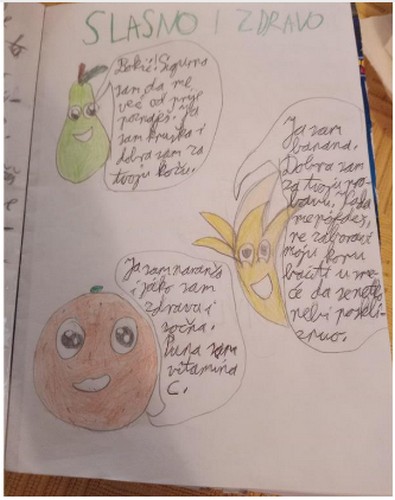 SLASNO I ZDRAVO
Bokić! Sigurna
sam da me
već od prije
poznaješ. Ja
sam kruška i
dobra sam za
tvoju kožu.
Ja sam
banana.
Dobra sam
za tvoju pro-
bavu. Kada
me pojedeš,
ne zaboravi
moju koru
baciti u sme-
će da se netko
nebi poskli-
znuo.
Ja sam naranča
i jako sam
zdrava i
sočna.
Puna sam
vitamina
C.